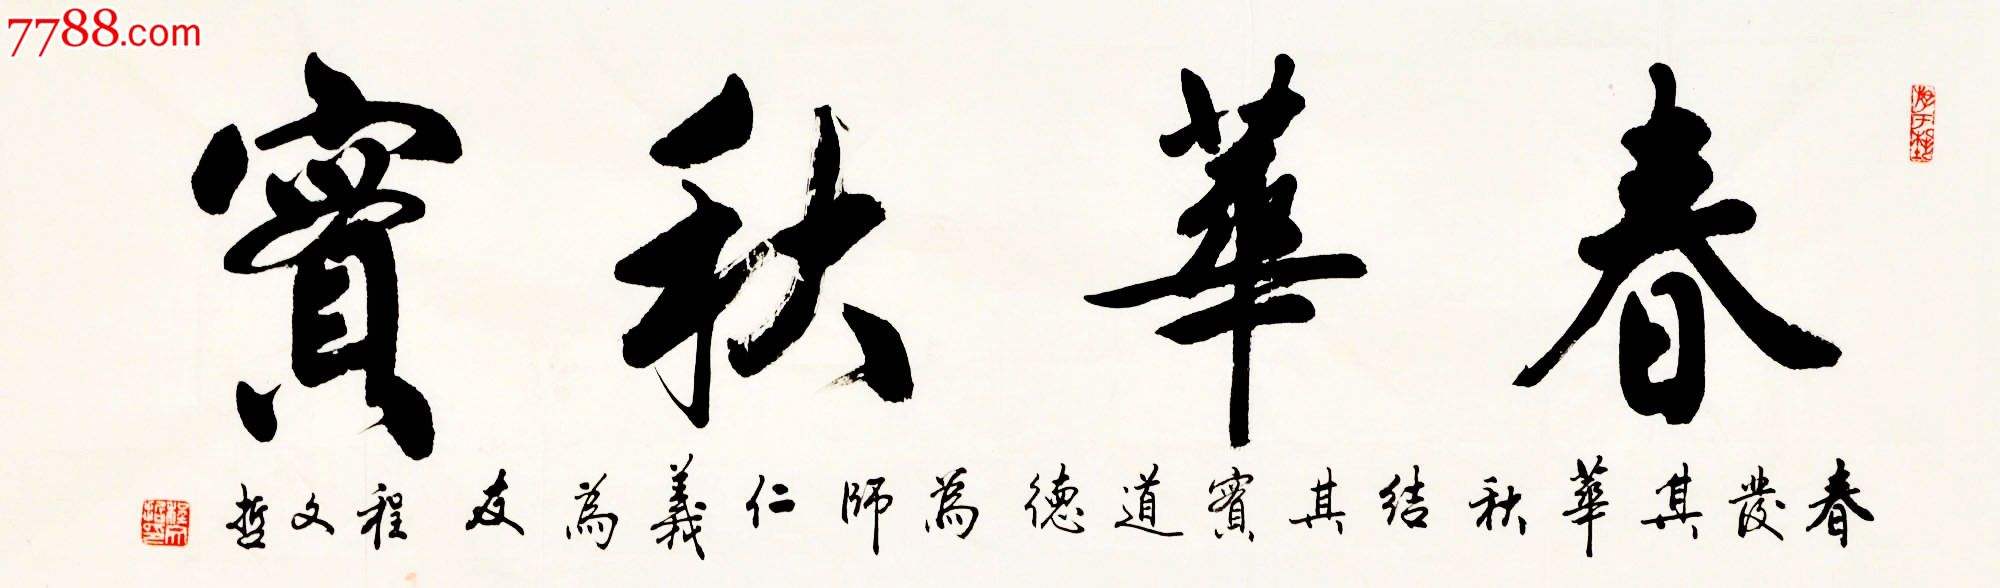 7788.com
春華秋實
春發其華秋結其實道德為師仁義為友 程文哲